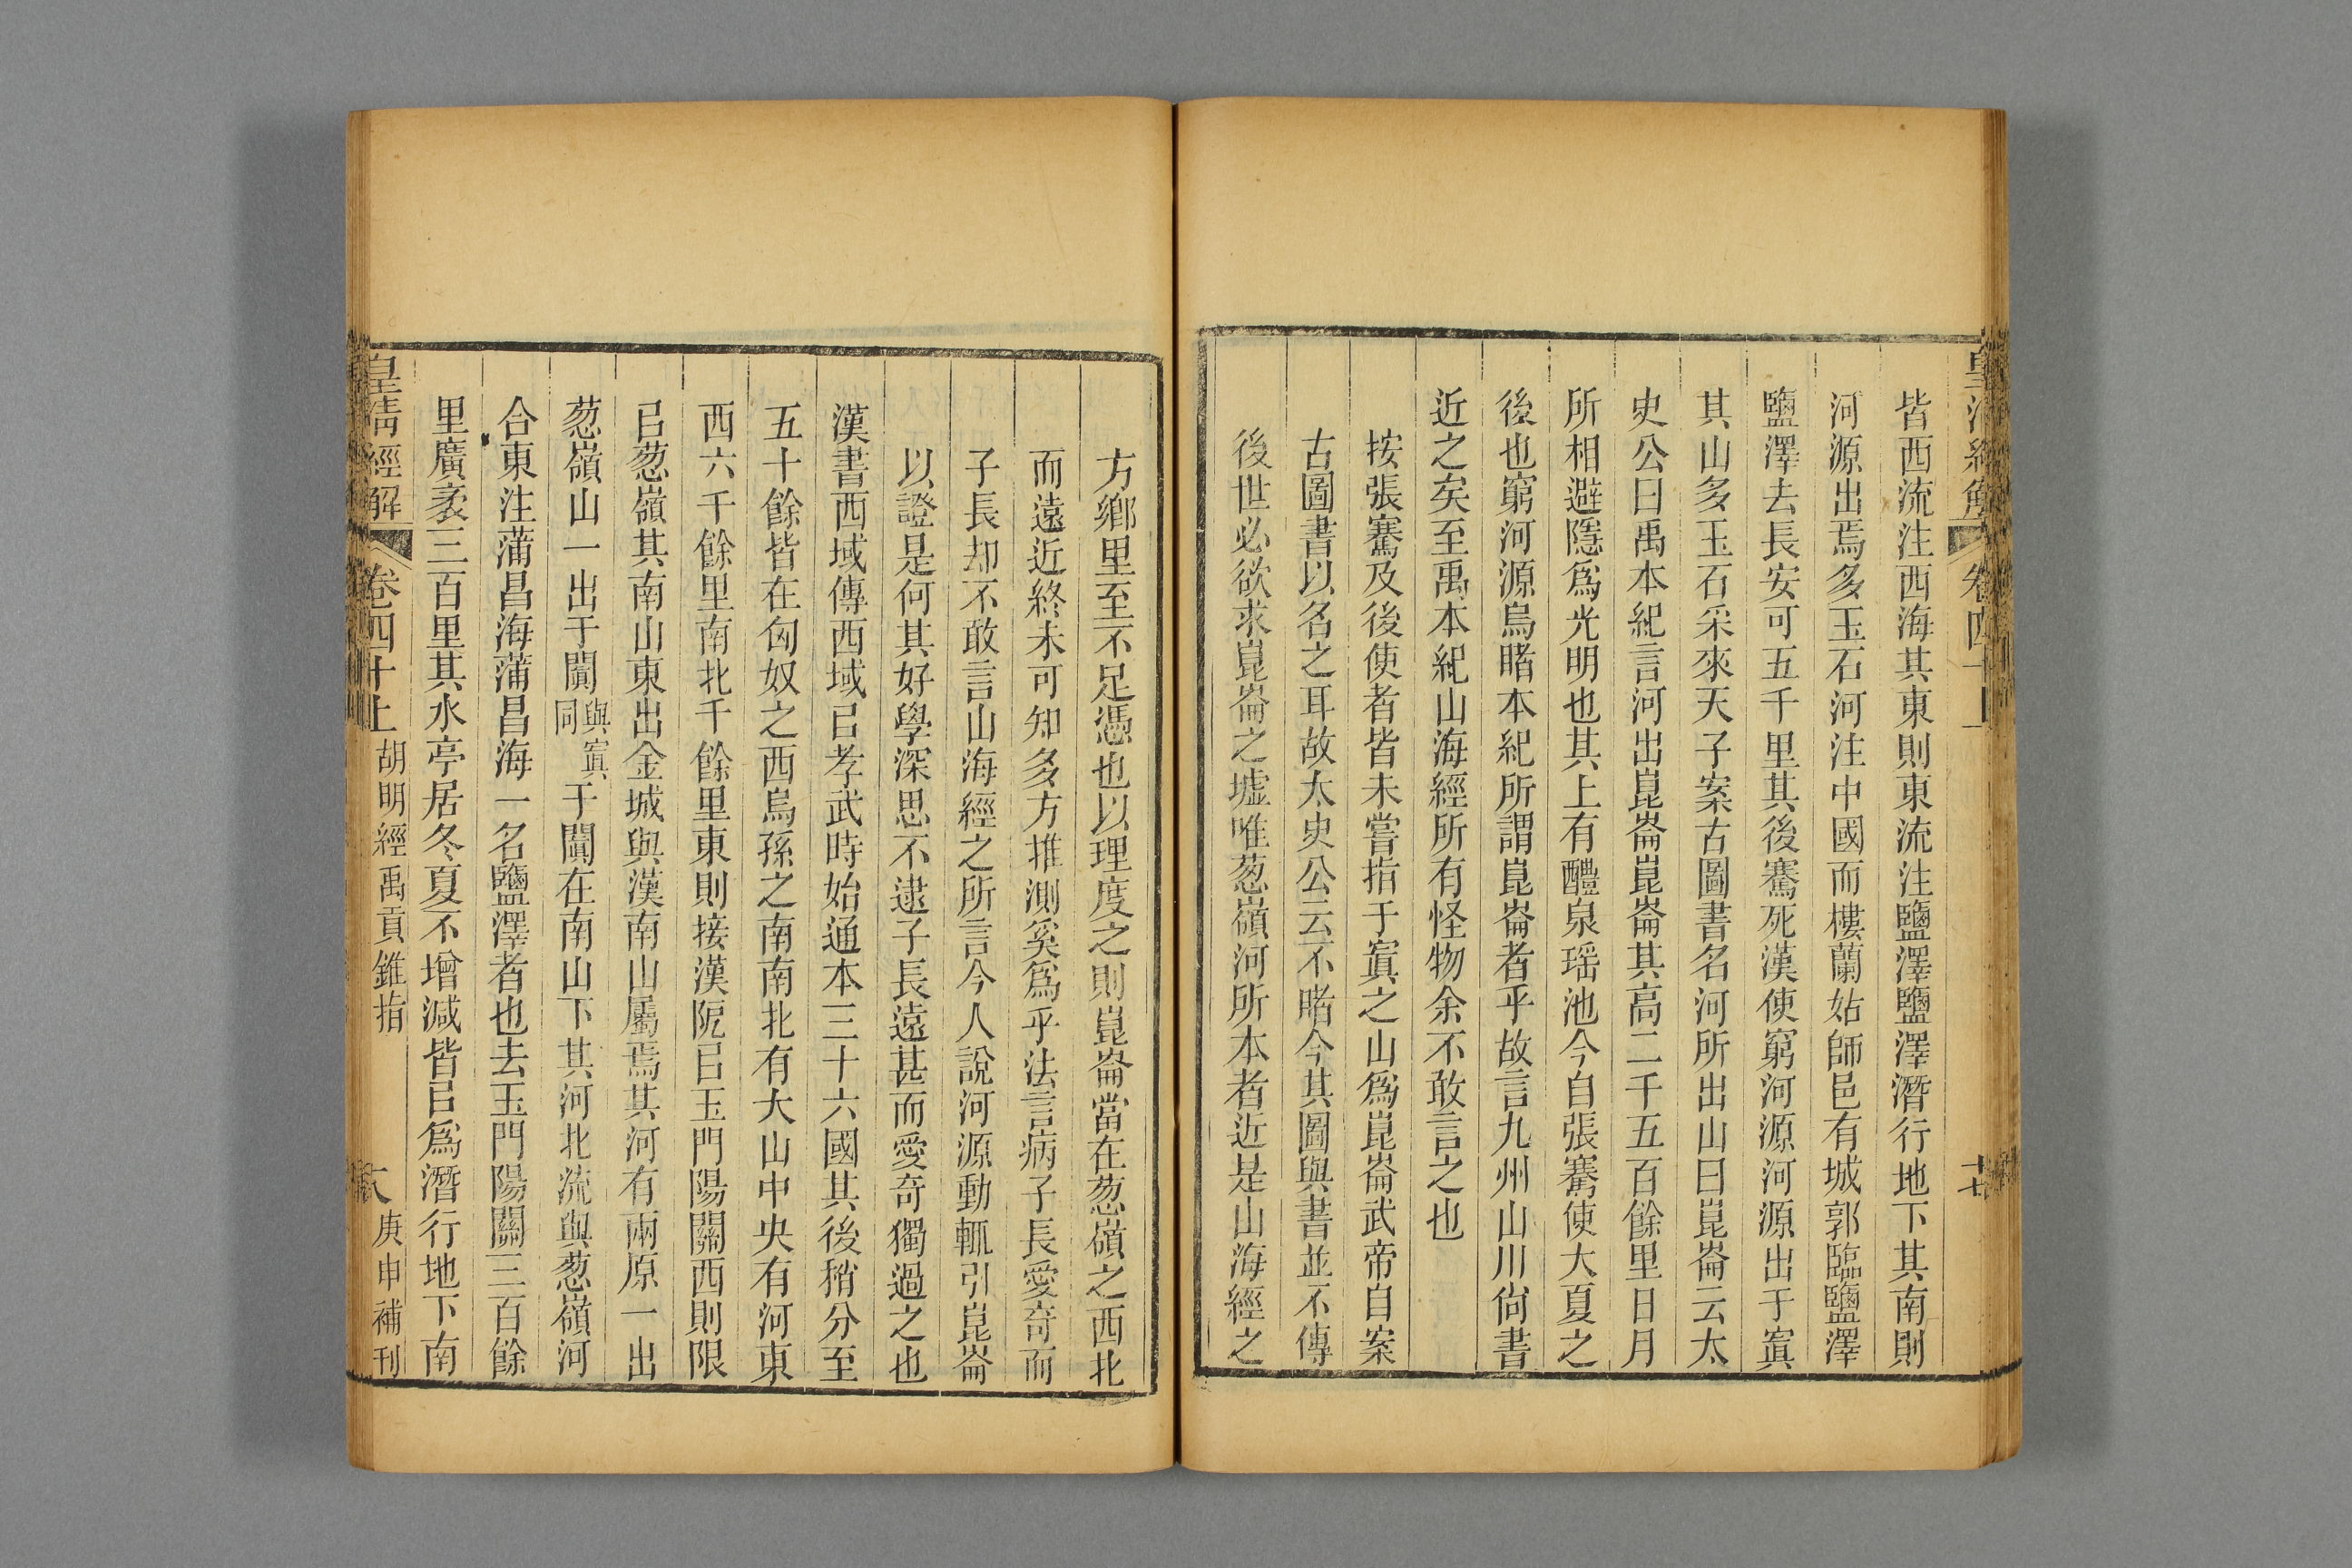 皇清經解
卷四十上
十七
皆西流注西海其東則東流注鹽澤鹽澤潛行地下其南則
河源出焉多玉石河注中國而樓蘭姑師邑有城郭臨鹽澤
鹽澤去長安可五千里其後騫死漢使窮河源河源出于寘
其山多玉石采來天子案古圖書名河所出山曰崑崙云太
史公曰禹本紀言河出崑崙崑崙其高二千五百餘里日月
所相避隱爲光明也其上有醴泉瑶池今自張騫使大夏之
後也窮河源烏睹本紀所謂崑崙者乎故言九州山川尙書
近之矣至禹本紀山海經所有怪物余不敢言之也
按張騫及後使者皆未嘗指于寘之山爲崑崙武帝自案
古圖書以名之耳故太史公云不睹今其圖與書並不傳
後世必欲求崑崙之墟唯葱嶺河所本者近是山海經之
方鄉里至不足憑也以理度之則崑崙當在葱嶺之西北
而遠近終未可知多方推測奚爲乎法言病子長愛奇而
子長却不敢言山海經之所言今人說河源動輒引崑崙
以證是何其好學深思不逮子長遠甚而愛奇獨過之也
漢書西域傳西域㠯孝武時始通本三十六國其後稍分至
五十餘皆在匈奴之西烏孫之南南北有大山中央有河東
西六千餘里南北千餘里東則接漢阸㠯玉門陽關西則限
㠯葱嶺其南山東出金城與漢南山屬焉其河有兩原一出
葱嶺山一出于闐與寘同于闐在南山下其河北流與葱嶺河
合東注蒲昌海蒲昌海一名鹽澤者也去玉門陽關三百餘
里廣袤三百里其水亭居冬夏不增減皆㠯爲潛行地下南
皇清經解
卷四十上
胡明經禹貢錐指
六
庚申補刊